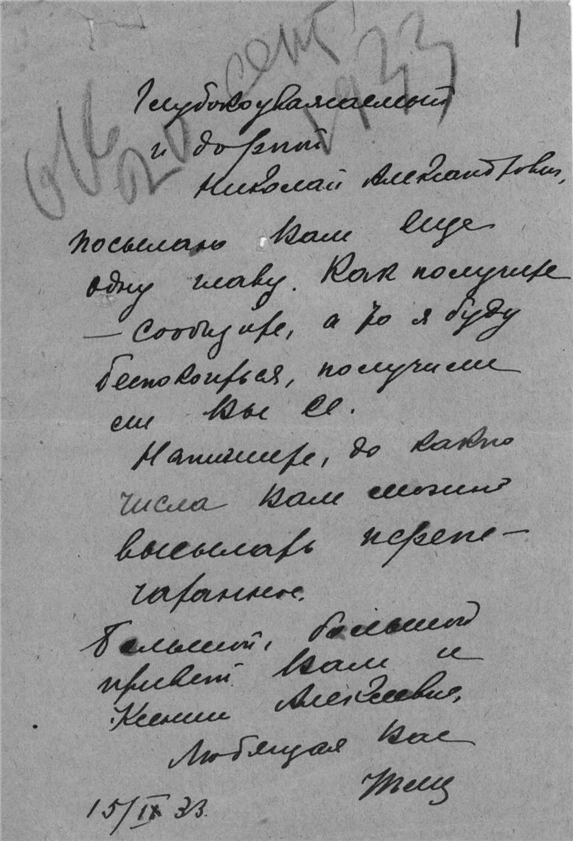 1
отв
20 сент
1933
Глубокоуважаемый
и дорогой
Николай Александрович,
посылаю Вам еще
одну главу. Как получите
— сообщите, а то я буду
беспокоиться, получили
ли Вы ее.
Напишите, до какого
числа Вам можно
высылать перепе-
чатанное.
Большой, большой
привет Вам и
Ксении Алексеевне.
Любящая Вас
15/IX 33.